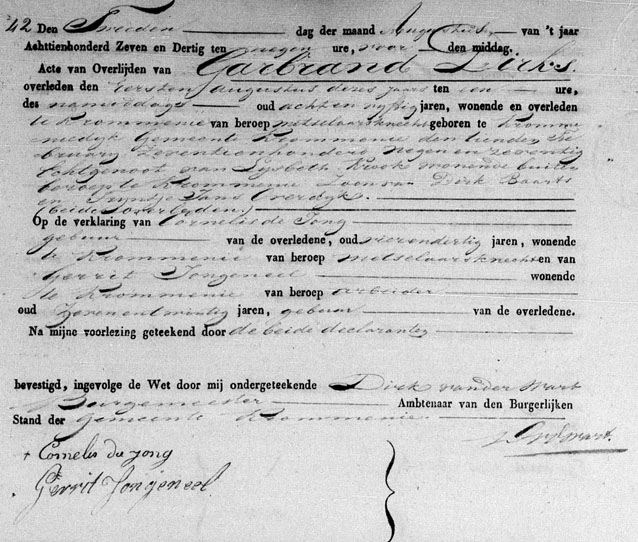 42 Den Tweeden dag der maand Augustus van 't jaar
Achttienhonderd Zeven en Dertig ten negen ure, voor den middag.
Acte van Overlijden van Garbrand Dirks
overleden den eersten augustus deses jaars ten een ure,
des namiddags oud acht en vyftig jaren, wonende en overleden
te Krommenie van beroep metselaarsknecht geboren te Kromme
niedyk Gemeente Krommenie den tienden Fe
bruary Zeventienhonderd negen en zeventig
Echtgenoot van Lysbeth Kook wonende buiten
beroep te Krommenie Zoon van Dirk Baarts
en Tryntje Jans Overdyk.
(beide overleden)
Op de verklaring van Cornelis de Jong
gebuur van de overledene, oud vierendertig jaren, wonende
te Krommenie van beroep metselaarsknecht en van
Gerrit Jongeneel wonende
te Krommenie van beroep arbeider
oud zevenentwintig jaren, gebuur van de overledene.
Na mijne voorlezing geteekend door de beide declaranten
bevestigd, ingevolge de Wet door mij ondergeteekende Dirk van der Wart
Burgemeester Ambtenaar van den Burgerlijken
Stand der gemeente Krommenie.
Cornelis de Jong
Gerrit Jongeneel